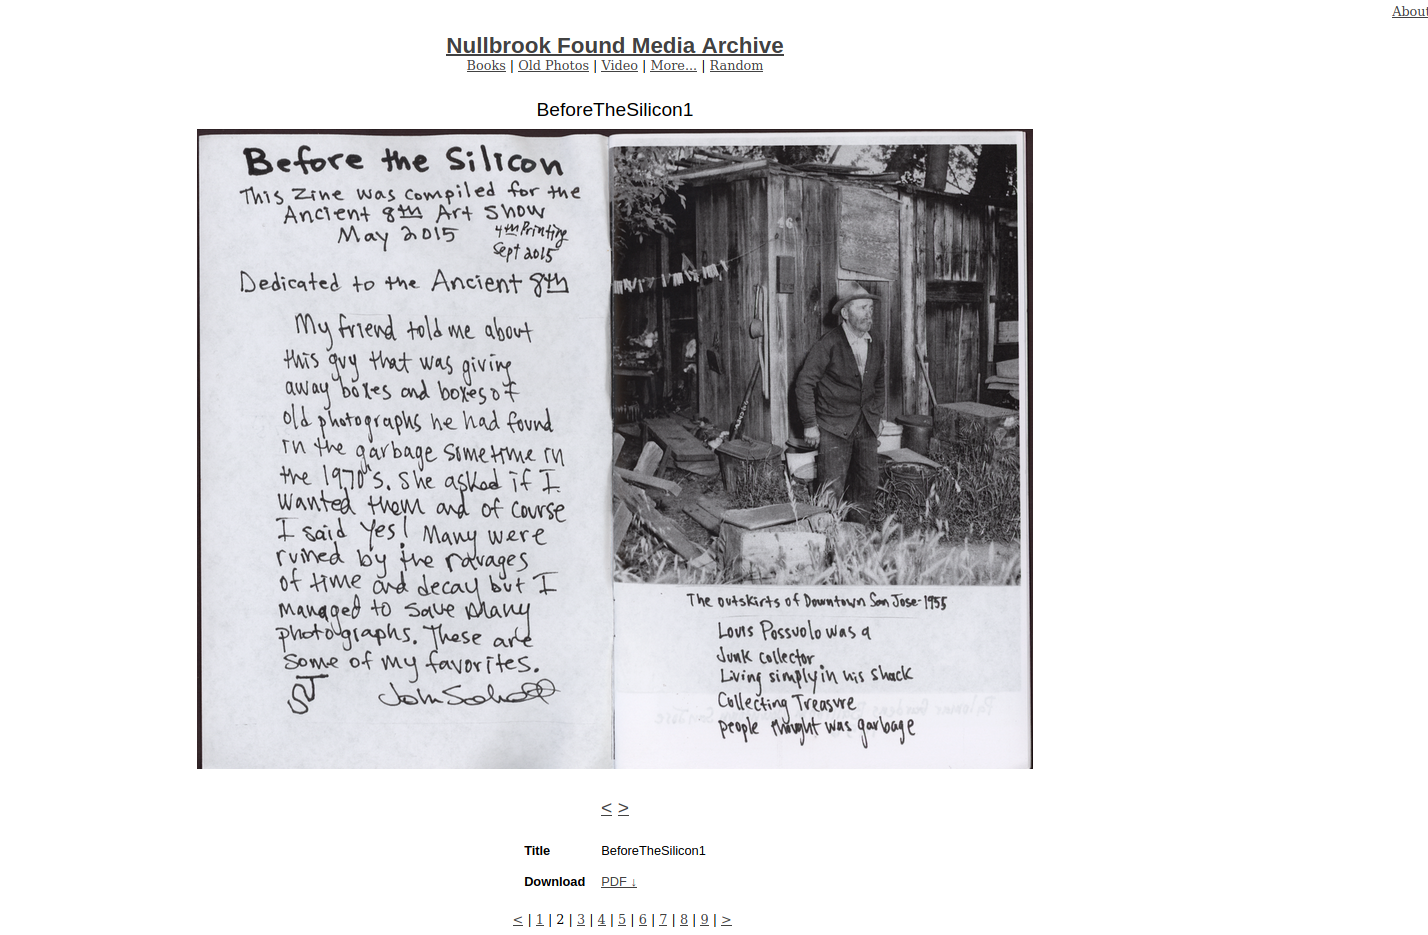 About
Nullbrook Found Media Archive
Books | Old Photos | Video | More... | Random
BeforeTheSilicon1
Before the Silicon
This Zine was compiled for the
Ancient 8th Art Show
May 2015
4th Printing
Sept 2015
Dedicated to the Ancient 8th
My friend told me about
this guy that was giving
away boxes and boxes of
old photographs he had found
in the garbage sometime in
the 1970's. She asked if I
wanted them and of course
I said yes! Many were
ruined by the ravages
of time and decay but I
managed to save many
photographs. These are
some of my favorites.
46
The outskirts of Downtown San Jose-1955
Louis Possuolo was a
Junk collector
Living simply in his shack
Collecting Treasure
people thought was garbage
< >
Title BeforeTheSilicon1
Download PDF ↓
< | 1 | 2 | 3 | 4 | 5 | 6 | 7 | 8 | 9 | >